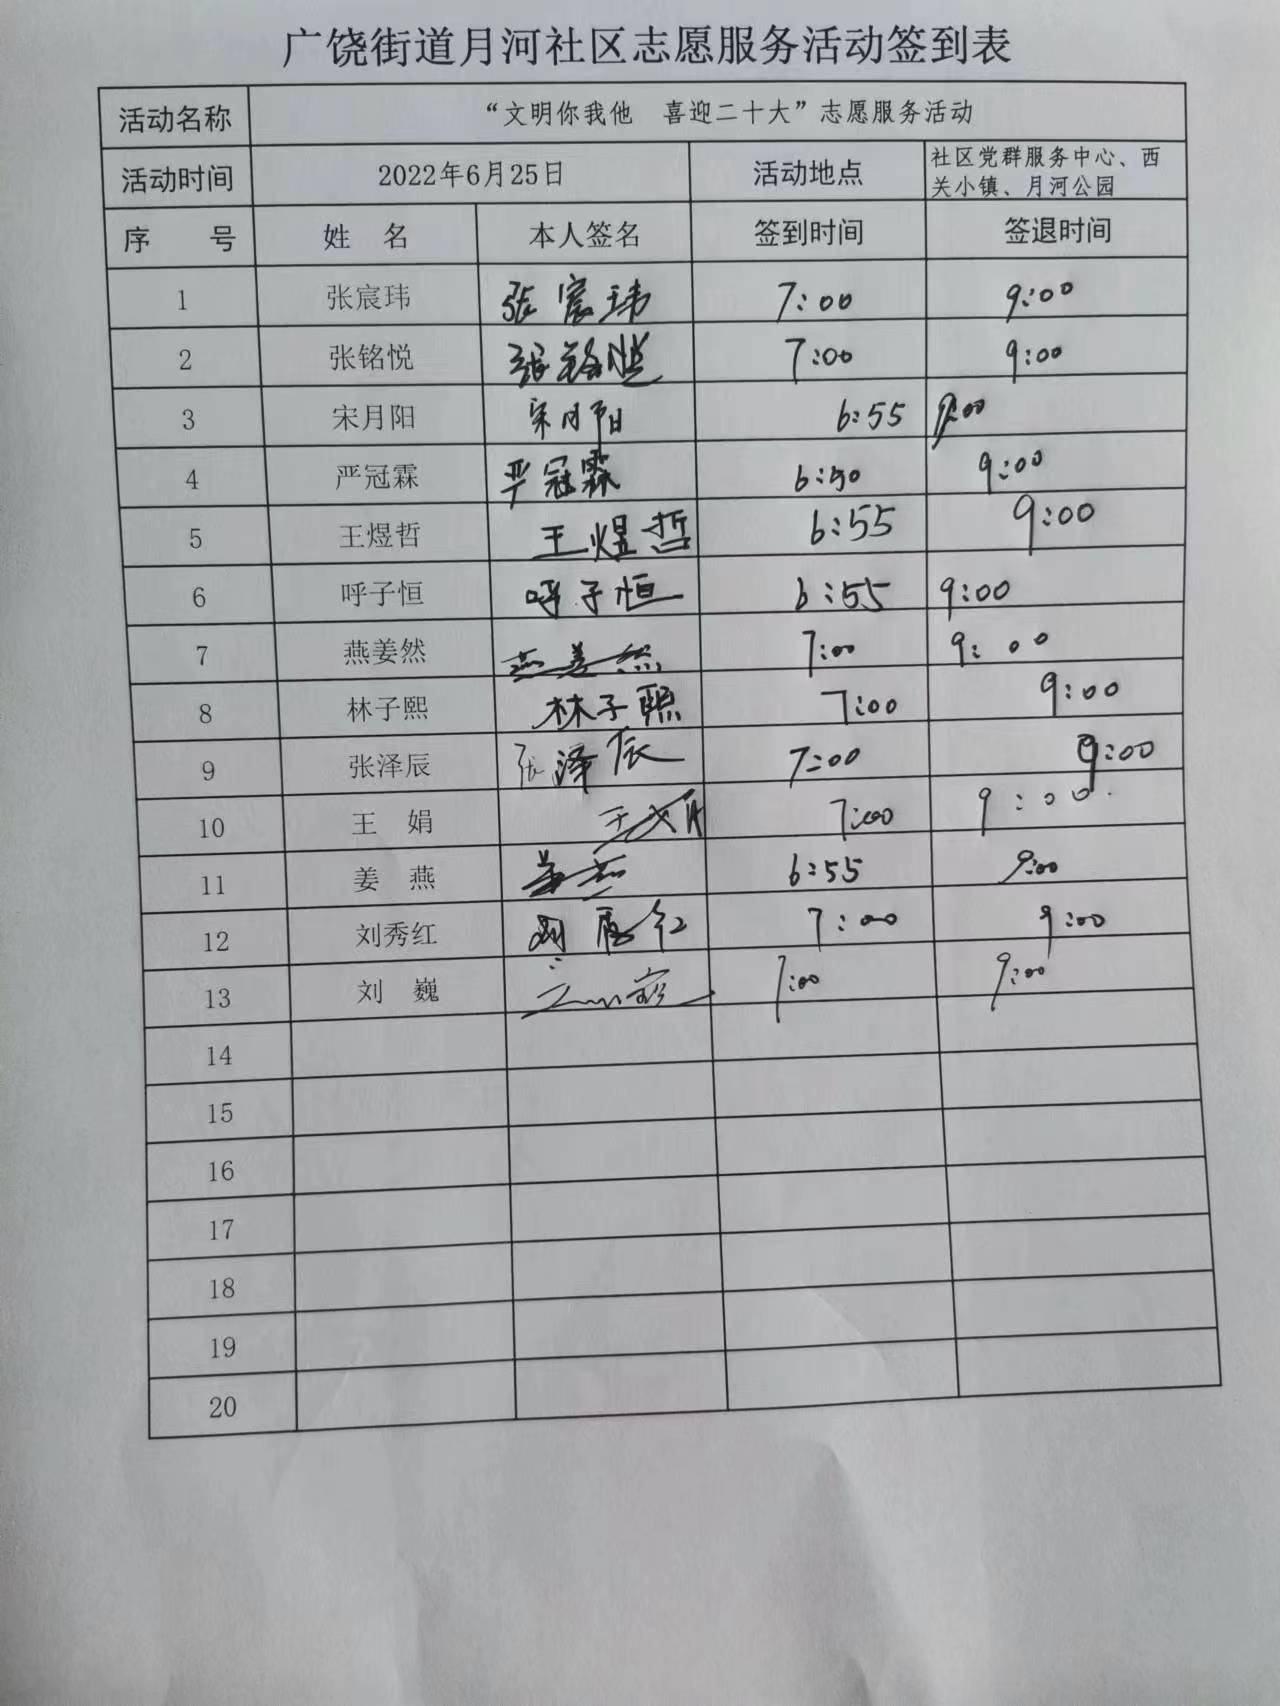 广饶街道月河社区志愿服务活动签到表
活动名称 “文明你我他 喜迎二十大”志愿服务活动
活动时间 2022年6月25日 活动地点 社区党群服务中心、西
关小镇、月河公园
序 号 姓 名 本人签名 签到时间 签退时间
1 张宸玮 张宸玮 7:00 9:00
2 张铭悦 张铭悦 7:00 9:00
3 宋月阳 宋月阳 6:55 9:00
4 严冠霖 严冠霖 6:50 9:00
5 王煜哲 王煜哲 6:55 9:00
6 呼子恒 呼子恒 6:55 9:00
7 燕姜然 燕姜然 7:00 9:00
8 林子熙 林子熙 7:00 9:00
9 张泽辰 张泽辰 7:00 9:00
10 王 娟 王娟 7:00 9:00
11 姜 燕 姜燕 6:55 9:00
12 刘秀红 刘秀红 7:00 9:00
13 刘 巍 7:00 9:00
14
15
16
17
18
19
20